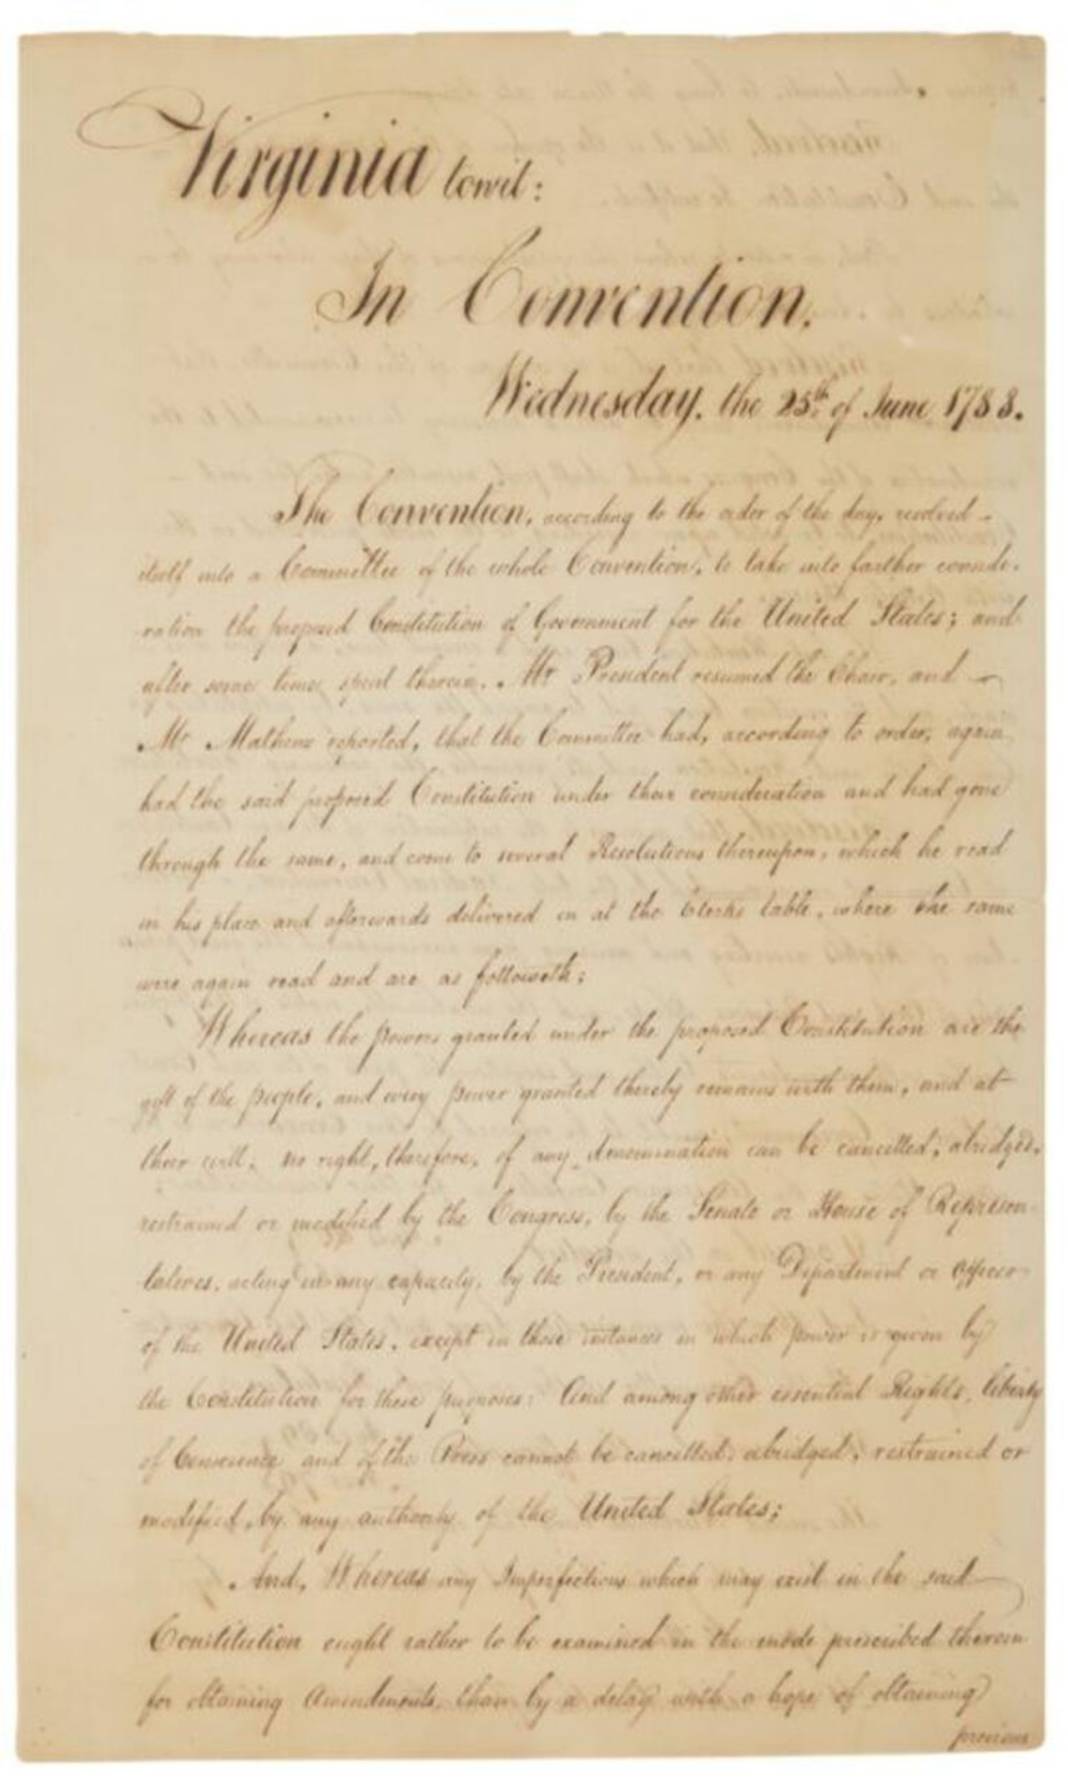 Virginia towit:
In Convention,
Wednesday, the 25th of June 1788.
The Convention, according to the order of the day, resolved
itself into a Committee of the whole Convention, to take into farther conside-
ration the proposed Constitution of Government for the United States; and
after some time spent therein, Mr President resumed the Chair, and
Mr Mathews reported, that the Committee had, according to order, again
had the said proposed Constitution under their consideration and had gone
through the same, and come to several Resolutions thereupon, which he read
in his place and afterwards delivered in at the Clerks table, where the same
were again read and are as followeth;
Whereas the powers granted under the proposed Constitution are the
gift of the people, and every power granted thereby remains with them, and at
their will; no right, therefore, of any denomination can be cancelled, abridged,
restrained or modified by the Congress, by the Senate or House of Represen-
tatives, acting in any capacity, by the President, or any Department or Officer
of the United States, except in those instances in which power is given by
the Constitution for these purposes: And among other essential Rights, liberty
of Conscience and of the Press cannot be cancelled, abridged, restrained or
modified, by any authority of the United States;
And, Whereas any Imperfections which may exist in the said
Constitution ought rather to be examined in the mode prescribed therein
for obtaining Amendments, than by a delay with a hope of obtaining
previous